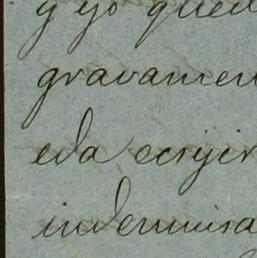 y yo qued
gravamen
eda ecsijir
indemnisa